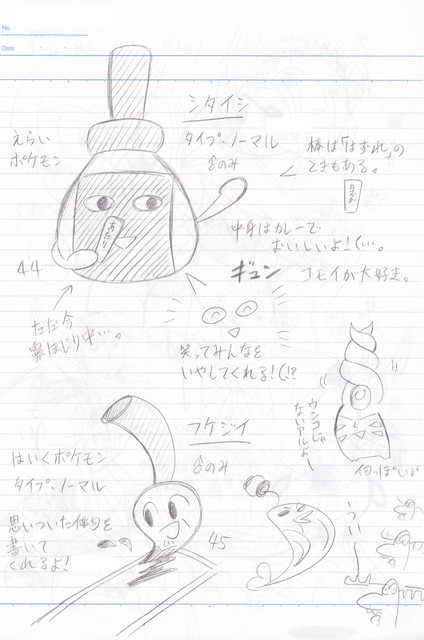 No.
Date
シタイシ
えらい
ポケモン
タイプ・ノーマル
♂のみ
棒は「はずれ」の
ときもある。
はずれ
あたり
中身はカレーで
おいしいよ!(…。
44
ギュン
コモイが大好き。
ただ今
鼻ほじり中…。
笑ってみんなを
いやしてくれる!(!?
ウンコじゃ
ないアルよー
フケジイ
♂のみ
はいくポケモン
タイプ・ノーマル
思いついた俳句を
書いて
くれるよ!
45